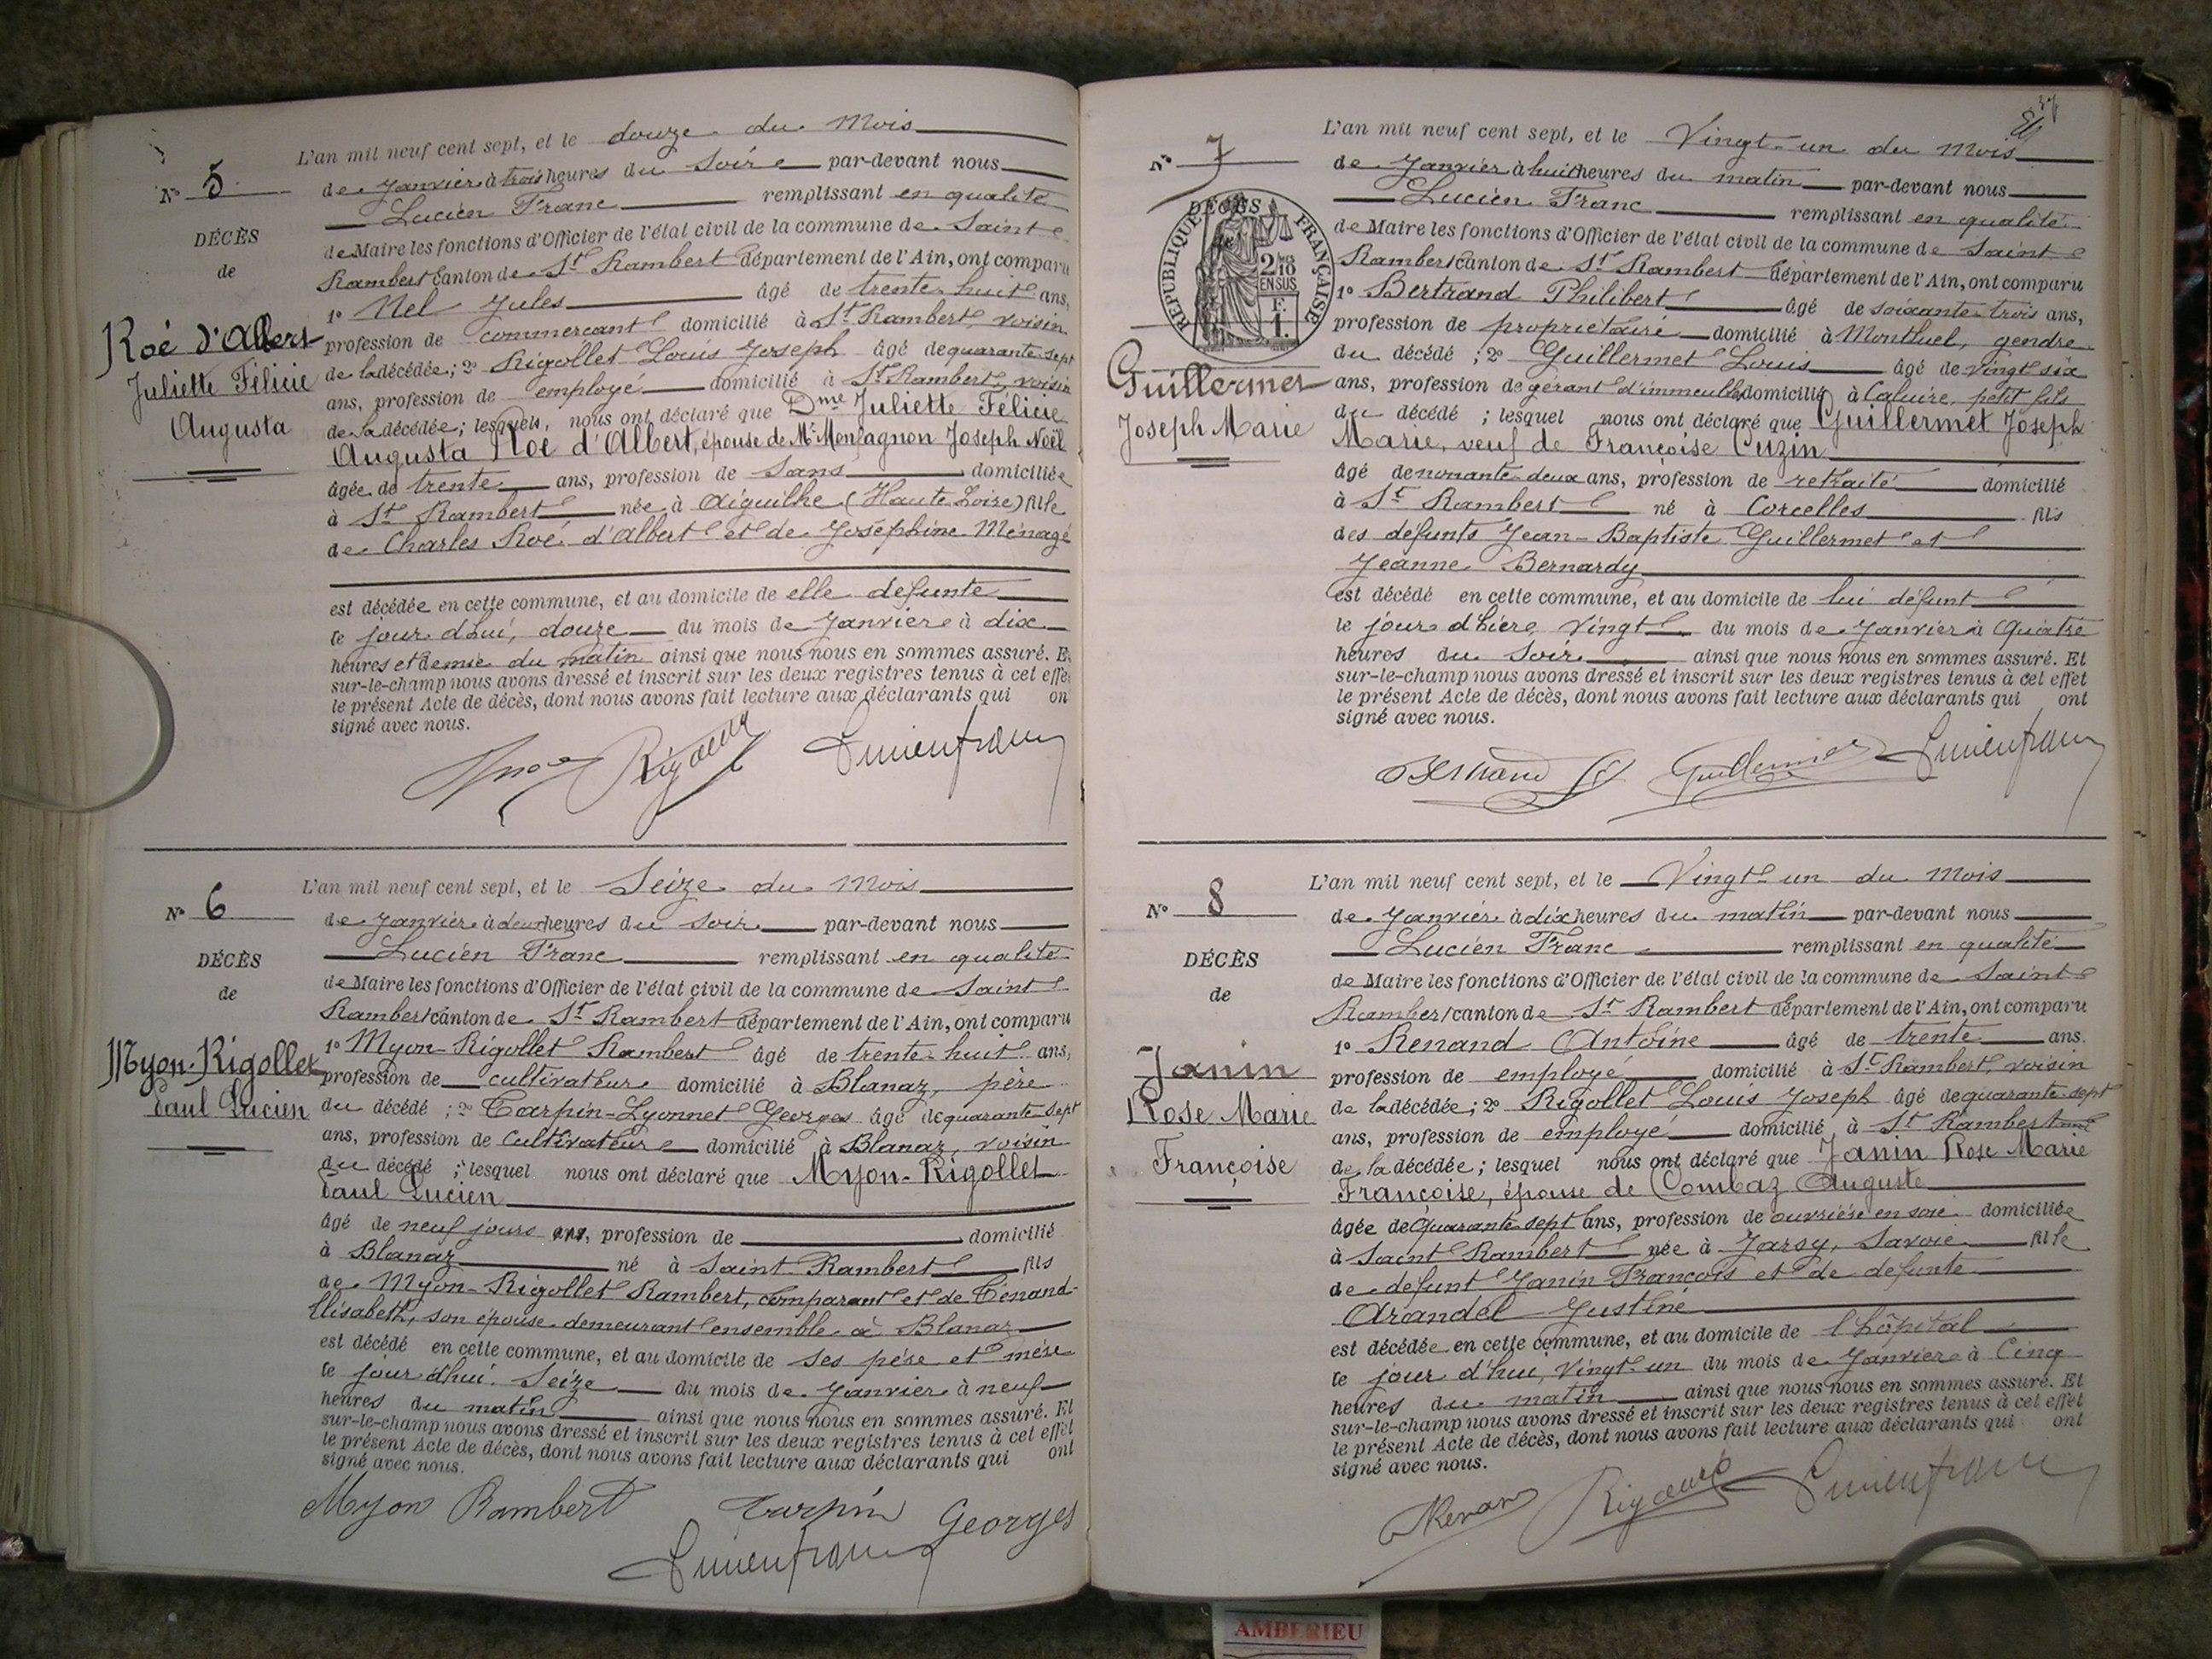 L'an mil neuf cent sept, et le douze du Mois
N° 5
de Janvier à trois heures du Soir par-devant nous
Lucien Franc remplissant en qualité
DÉCÈS
de Maire les fonctions d'Officier de l'état civil de la commune de Saint
de
Rambert canton de St Rambert département de l'Ain, ont comparu
1° Nel Jules âgé de trente huit ans,
Roé d'Albert
Juliette Félicie
Augusta
profession de commerçant domicilié à St Rambert, voisin
de la décédée; 2° Rigollet Louis Joseph âgé de quarante sept
ans, profession de employé domicilié à St Rambert, voisin
de la décédée; lesquels, nous ont déclaré que Dme Juliette Félicie
Augusta Roé d'Albert, épouse de Mr Montagnon Joseph Noël
âgée de trente ans, profession de Sans domiciliée
à St Rambert née à Aiguilhe (Haute Loire) fille
de Charles Roé d'Albert et de Joséphine Ménagé
est décédée en cette commune, et au domicile de elle défunte
le jour d'hui, douze du mois de Janvier à dix
heures et demie du matin ainsi que nous nous en sommes assuré. E
sur-le-champ nous avons dressé et inscrit sur les deux registres tenus à cet effe
le présent Acte de décès, dont nous avons fait lecture aux déclarants qui on
signé avec nous.
Rigollet Lucien franc
L'an mil neuf cent sept, et le Seize du Mois
N° 6
de Janvier à deux heures du soir par-devant nous
Lucien Franc remplissant en qualité
DÉCÈS
de Maire les fonctions d'Officier de l'état civil de la commune de Saint
de
Rambert canton de St Rambert département de l'Ain, ont comparu
1° Myon-Rigollet Rambert âgé de trente huit ans,
Myon-Rigollet
Paul Lucien
profession de cultivateur domicilié à Blanaz, père
du décédé; 2° Tarpin-Lyonnet Georges âgé de quarante sept
ans, profession de Cultivateur domicilié à Blanaz, voisin
du décédé; lesquel nous ont déclaré que Myon-Rigollet
Paul Lucien
âgé de neuf jours ans, profession de domicilié
à Blanaz né à Saint Rambert fils
de Myon-Rigollet Rambert, comparant et de Tenand
Elisabeth, son épouse demeurant ensemble à Blanaz
est décédé en cette commune, et au domicile de ses père et mère
le jour d'hui. Seize du mois de Janvier à neuf
heures du matin ainsi que nous nous en sommes assuré. Et
sur-le-champ nous avons dressé et inscrit sur les deux registres tenus à cet effet
le présent Acte de décès, dont nous avons fait lecture aux déclarants qui ont
signé avec nous.
Myon Rambert Tarpin Georges
Lucien franc
37
L'an mil neuf cent sept, et le Vingt-un du Mois
N° 7
de Janvier à huit heures du matin par-devant nous
Lucien Franc remplissant en qualité
DÉCÈS
RÉPUBLIQUE FRANÇAISE
2/10 EN SUS
F. 1.
de Maire les fonctions d'Officier de l'état civil de la commune de Saint
Rambert canton de St Rambert département de l'Ain, ont comparu
1° Bertrand Philibert âgé de soixante-trois ans,
profession de propriétaire domicilié à Montluel, gendre
Guillermet
Joseph Marie
du décédé; 2° Guillermet Louis âgé de vingt six
ans, profession de gérant d'immeubles domicilié à Caluire, petit fils
du décédé; lesquel nous ont déclaré que Guillermet Joseph
Marie, veuf de Françoise Cuzin
âgé de nonante-deux ans, profession de retraité domicilié
à St Rambert né à Corcelles fils
des défunts Jean-Baptiste Guillermet et
Jeanne Bernardy
est décédé en cette commune, et au domicile de lui défunt
le jour d'hier, Vingt du mois de Janvier à Quatre
heures du Soir ainsi que nous nous en sommes assuré. Et
sur-le-champ nous avons dressé et inscrit sur les deux registres tenus à cet effet
le présent Acte de décès, dont nous avons fait lecture aux déclarants qui ont
signé avec nous.
Bertrand Guillermet Lucien franc
L'an mil neuf cent sept, et le Vingt-un du Mois
N° 8
de Janvier à dix heures du matin par-devant nous
Lucien Franc remplissant en qualité
DÉCÈS
de Maire les fonctions d'Officier de l'état civil de la commune de Saint
de
Rambert canton de St Rambert département de l'Ain, ont comparu
1° Renand Antoine âgé de trente ans.
Janin
Rose Marie
Françoise
profession de employé domicilié à St Rambert, voisin
de la décédée; 2° Rigollet Louis Joseph âgé de quarante-sept
ans, profession de employé domicilié à St Rambert
de la décédée; lesquel nous ont déclaré que Janin Rose Marie
Françoise, épouse de Combaz Auguste
âgée de Quarante-sept ans, profession de ouvrière en soie domiciliée
à Saint Rambert née à Jarsy, Savoie fille
de défunt Janin François et de défunte
Arandel Justine
est décédée en cette commune, et au domicile de l'hôpital
le jour d'hui, Vingt-un du mois de Janvier à Cinq
heures du matin ainsi que nous nous en sommes assuré. Et
sur-le-champ nous avons dressé et inscrit sur les deux registres tenus à cet effet
le présent Acte de décès, dont nous avons fait lecture aux déclarants qui ont
signé avec nous.
Renan Rigollet Lucien franc
AMBERIEU